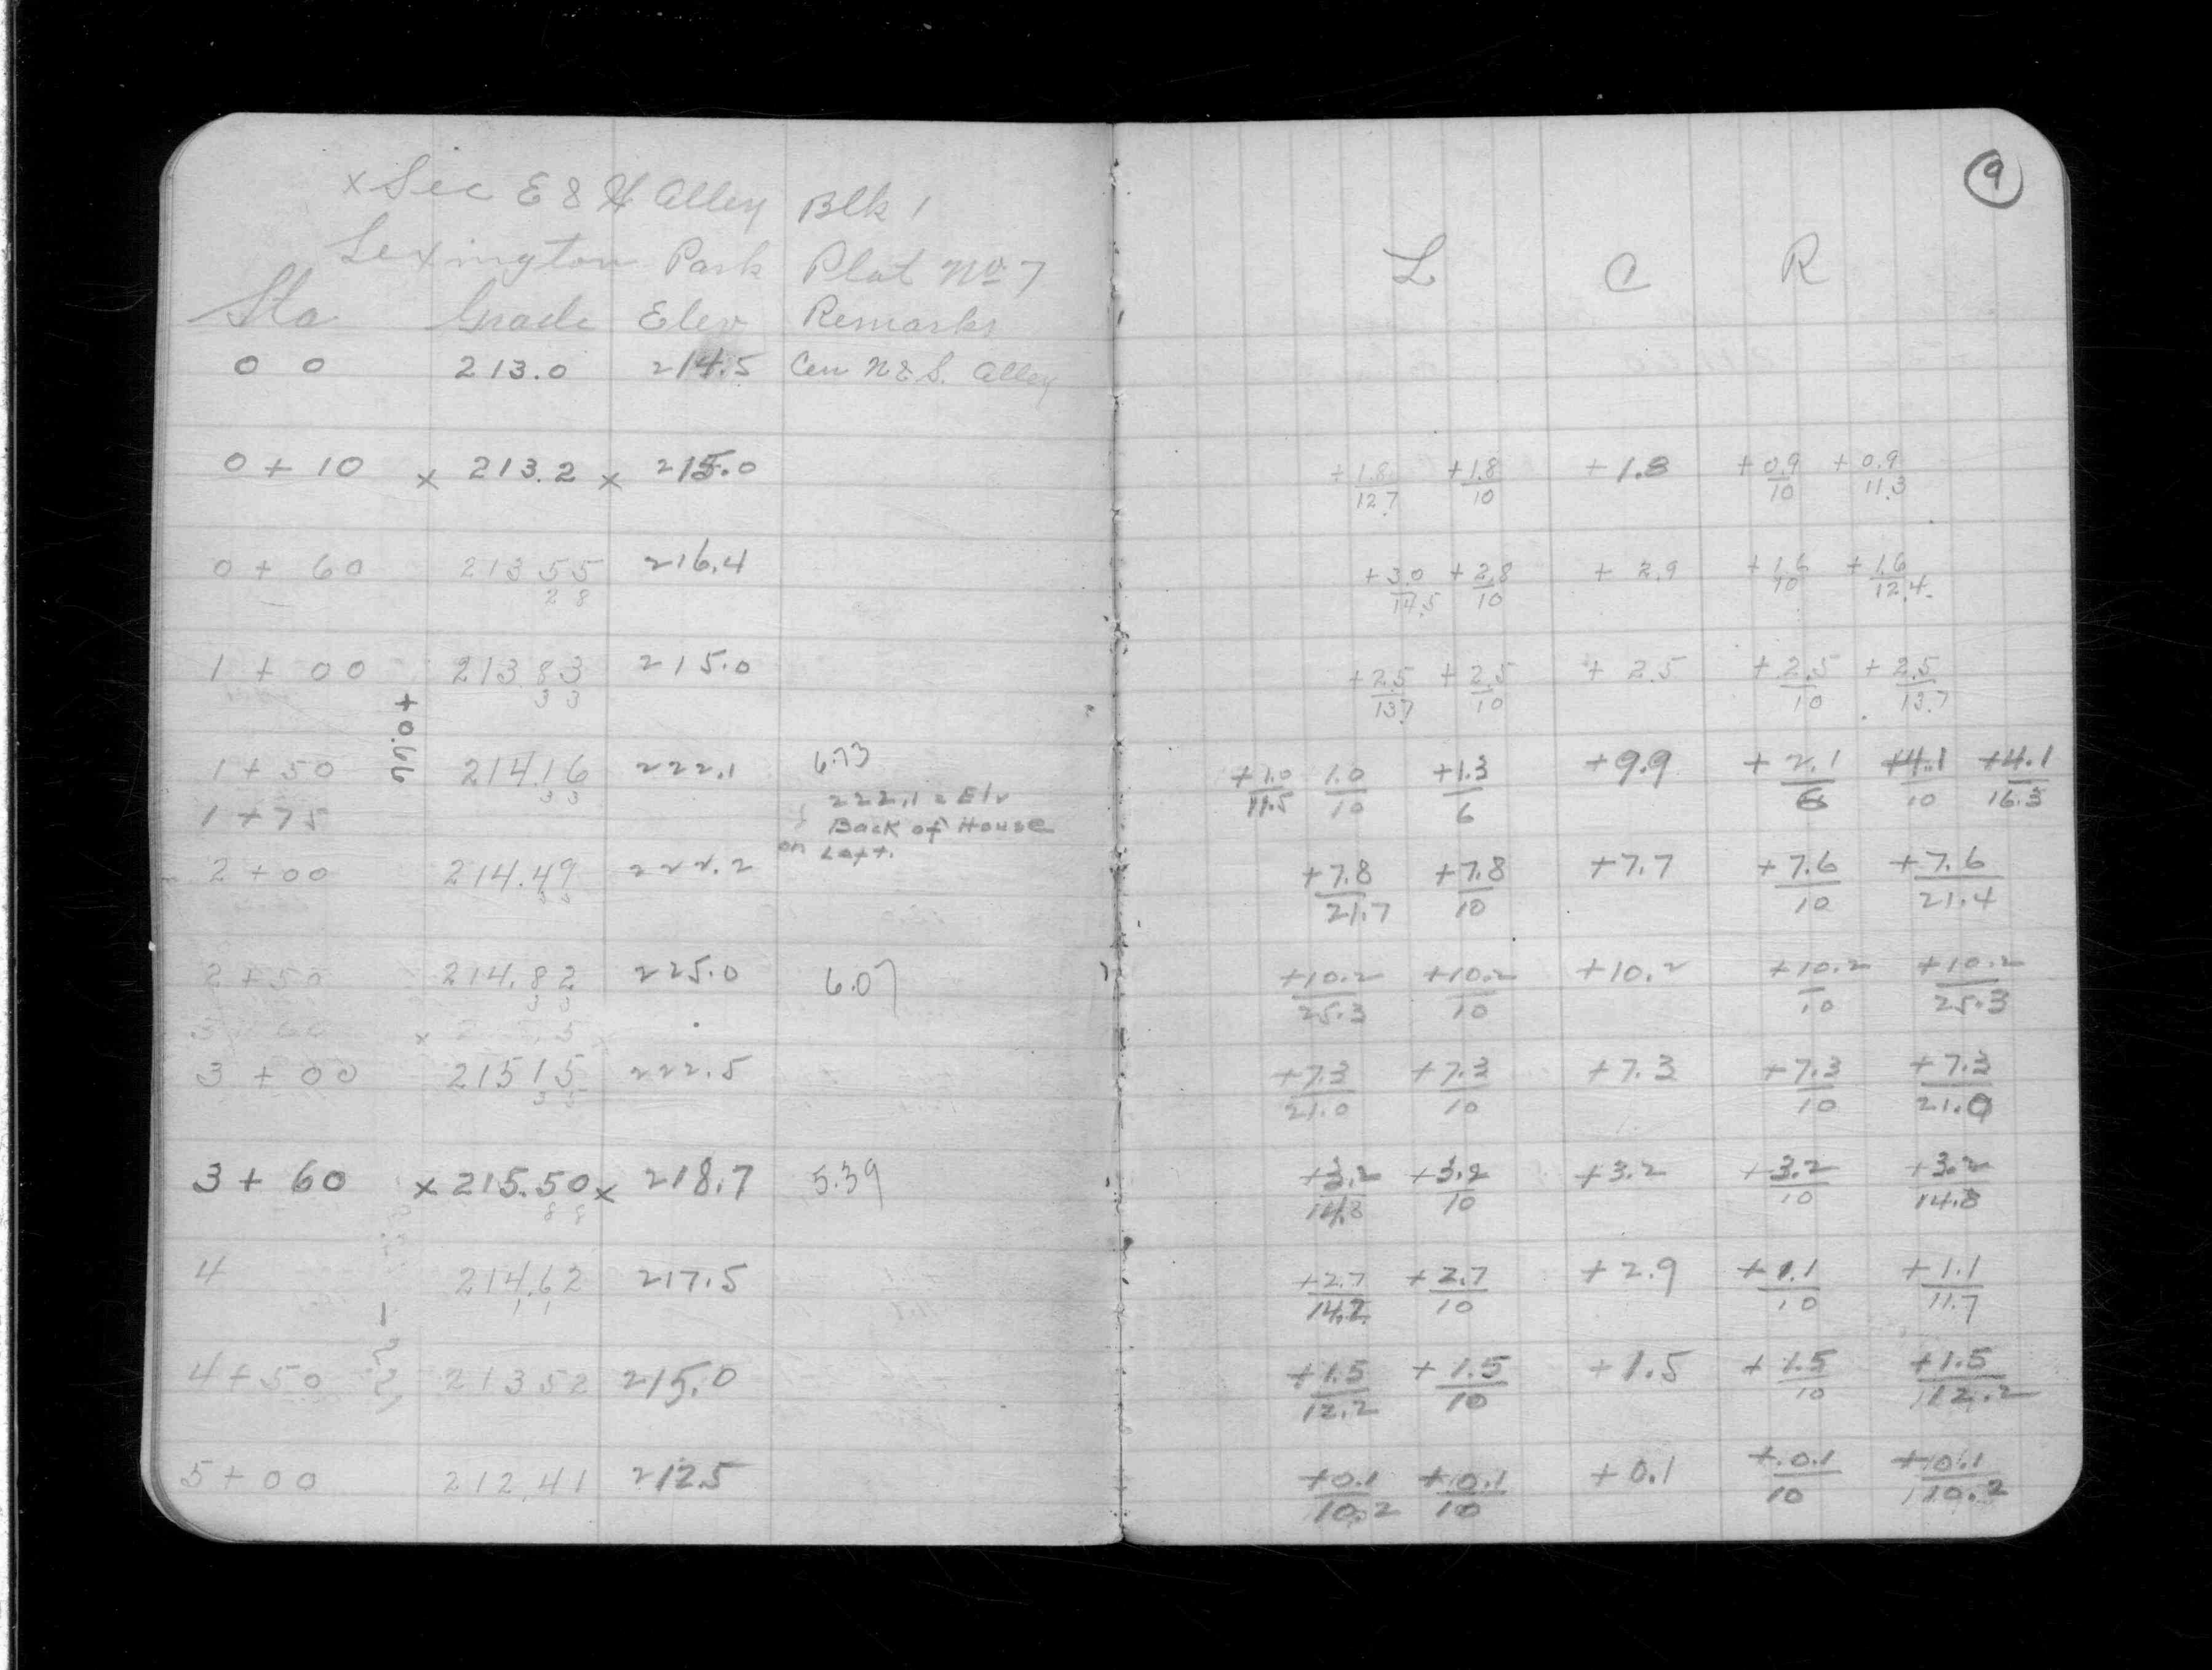 x Sec E & W Alley Blk 1
Lexington Park Plat No 7
9
Sta Grade Elev Remarks L C R
0 0 213.0 214.5 Cen N & S. Alley
0 + 10 x 213.2 x 215.0 +1.8/12.7 +1.8/10 +1.8 +0.9/10 +0.9/11.3
0 + 60 213 55 216.4 +3.0/14.5 +2.8/10 +2.9 +1.6/10 +1.6/12.4
2 8
1 + 00 213 83 215.0 +2.5/13.7 +2.5/10 +2.5 +2.5/10 +2.5/13.7
3 3
+0.66
1 + 50 214.16 222.1 6.73 +1.0/11.5 1.0/10 +1.3/6 +9.9 +2.1/6 +4.1/10 +4.1/16.3
3 3
222.1 = Elv
1 + 75 Back of House
on Left.
2 + 00 214.49 222.2 +7.8/21.7 +7.8/10 +7.7 +7.6/10 +7.6/21.4
3 3
2 + 50 214.82 225.0 6.07 +10.2/25.3 +10.2/10 +10.2 +10.2/10 +10.2/25.3
3 3
3 + 00 215 15 222.5 +7.3/21.0 +7.3/10 +7.3 +7.3/10 +7.3/21.0
3 5
3 + 60 x 215.50 x 218.7 5.39 +3.2/14.8 +3.2/10 +3.2 +3.2/10 +3.2/14.8
8 8
4 214.62 217.5 +2.7/14.2 +2.7/10 +2.9 +1.1/10 +1.1/11.7
1 1
4 + 50 213 52 215.0 +1.5/12.2 +1.5/10 +1.5 +1.5/10 +1.5/12.2
5 + 00 212.41 212.5 +0.1/10.2 +0.1/10 +0.1 +0.1/10 +0.1/10.2